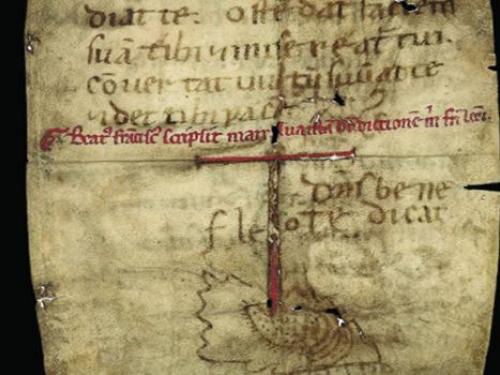 diat te. Ostēdat faciem
suā tibi 7 misereat tui.
cōvertat vultū suū ad te
7 det tibi pacē
Beatꝰ frāciscꝰ scripsit manu sua istā bn̄dictionē m̄ fr̄i leoni.
dn̄s bene
f le o te dicat